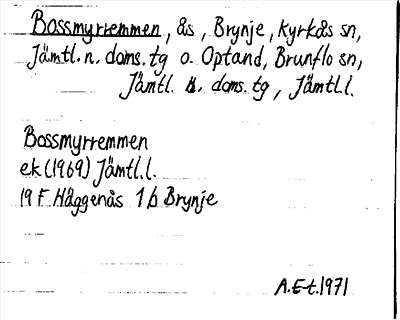 Bossmyrremmen, ås, Brynje, Kyrkås sn,
Jämtl. n. doms. tg o. Optand, Brunflo sn,
Jämtl. s. doms. tg, Jämtl.l.
Bossmyrremmen
ek (1969) Jämtl.l.
19 F Häggenås 1 b Brynje
A.E-t. 1971